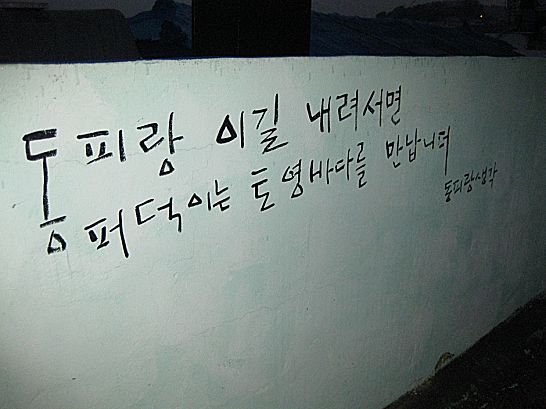 동피랑 이길 내려서면
퍼덕이는 토영바다를 만납니더
동피랑생각